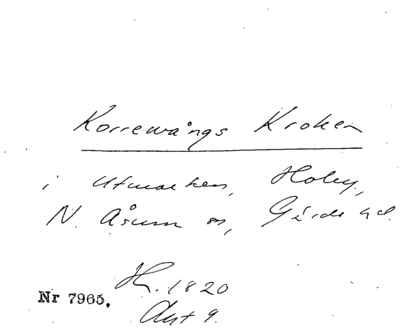 Korrewångs Kroken
i Utmarken, Holey,
N. Åsum sn, Gärds hd.
H. 1820
Akt 9.
Nr 7965.